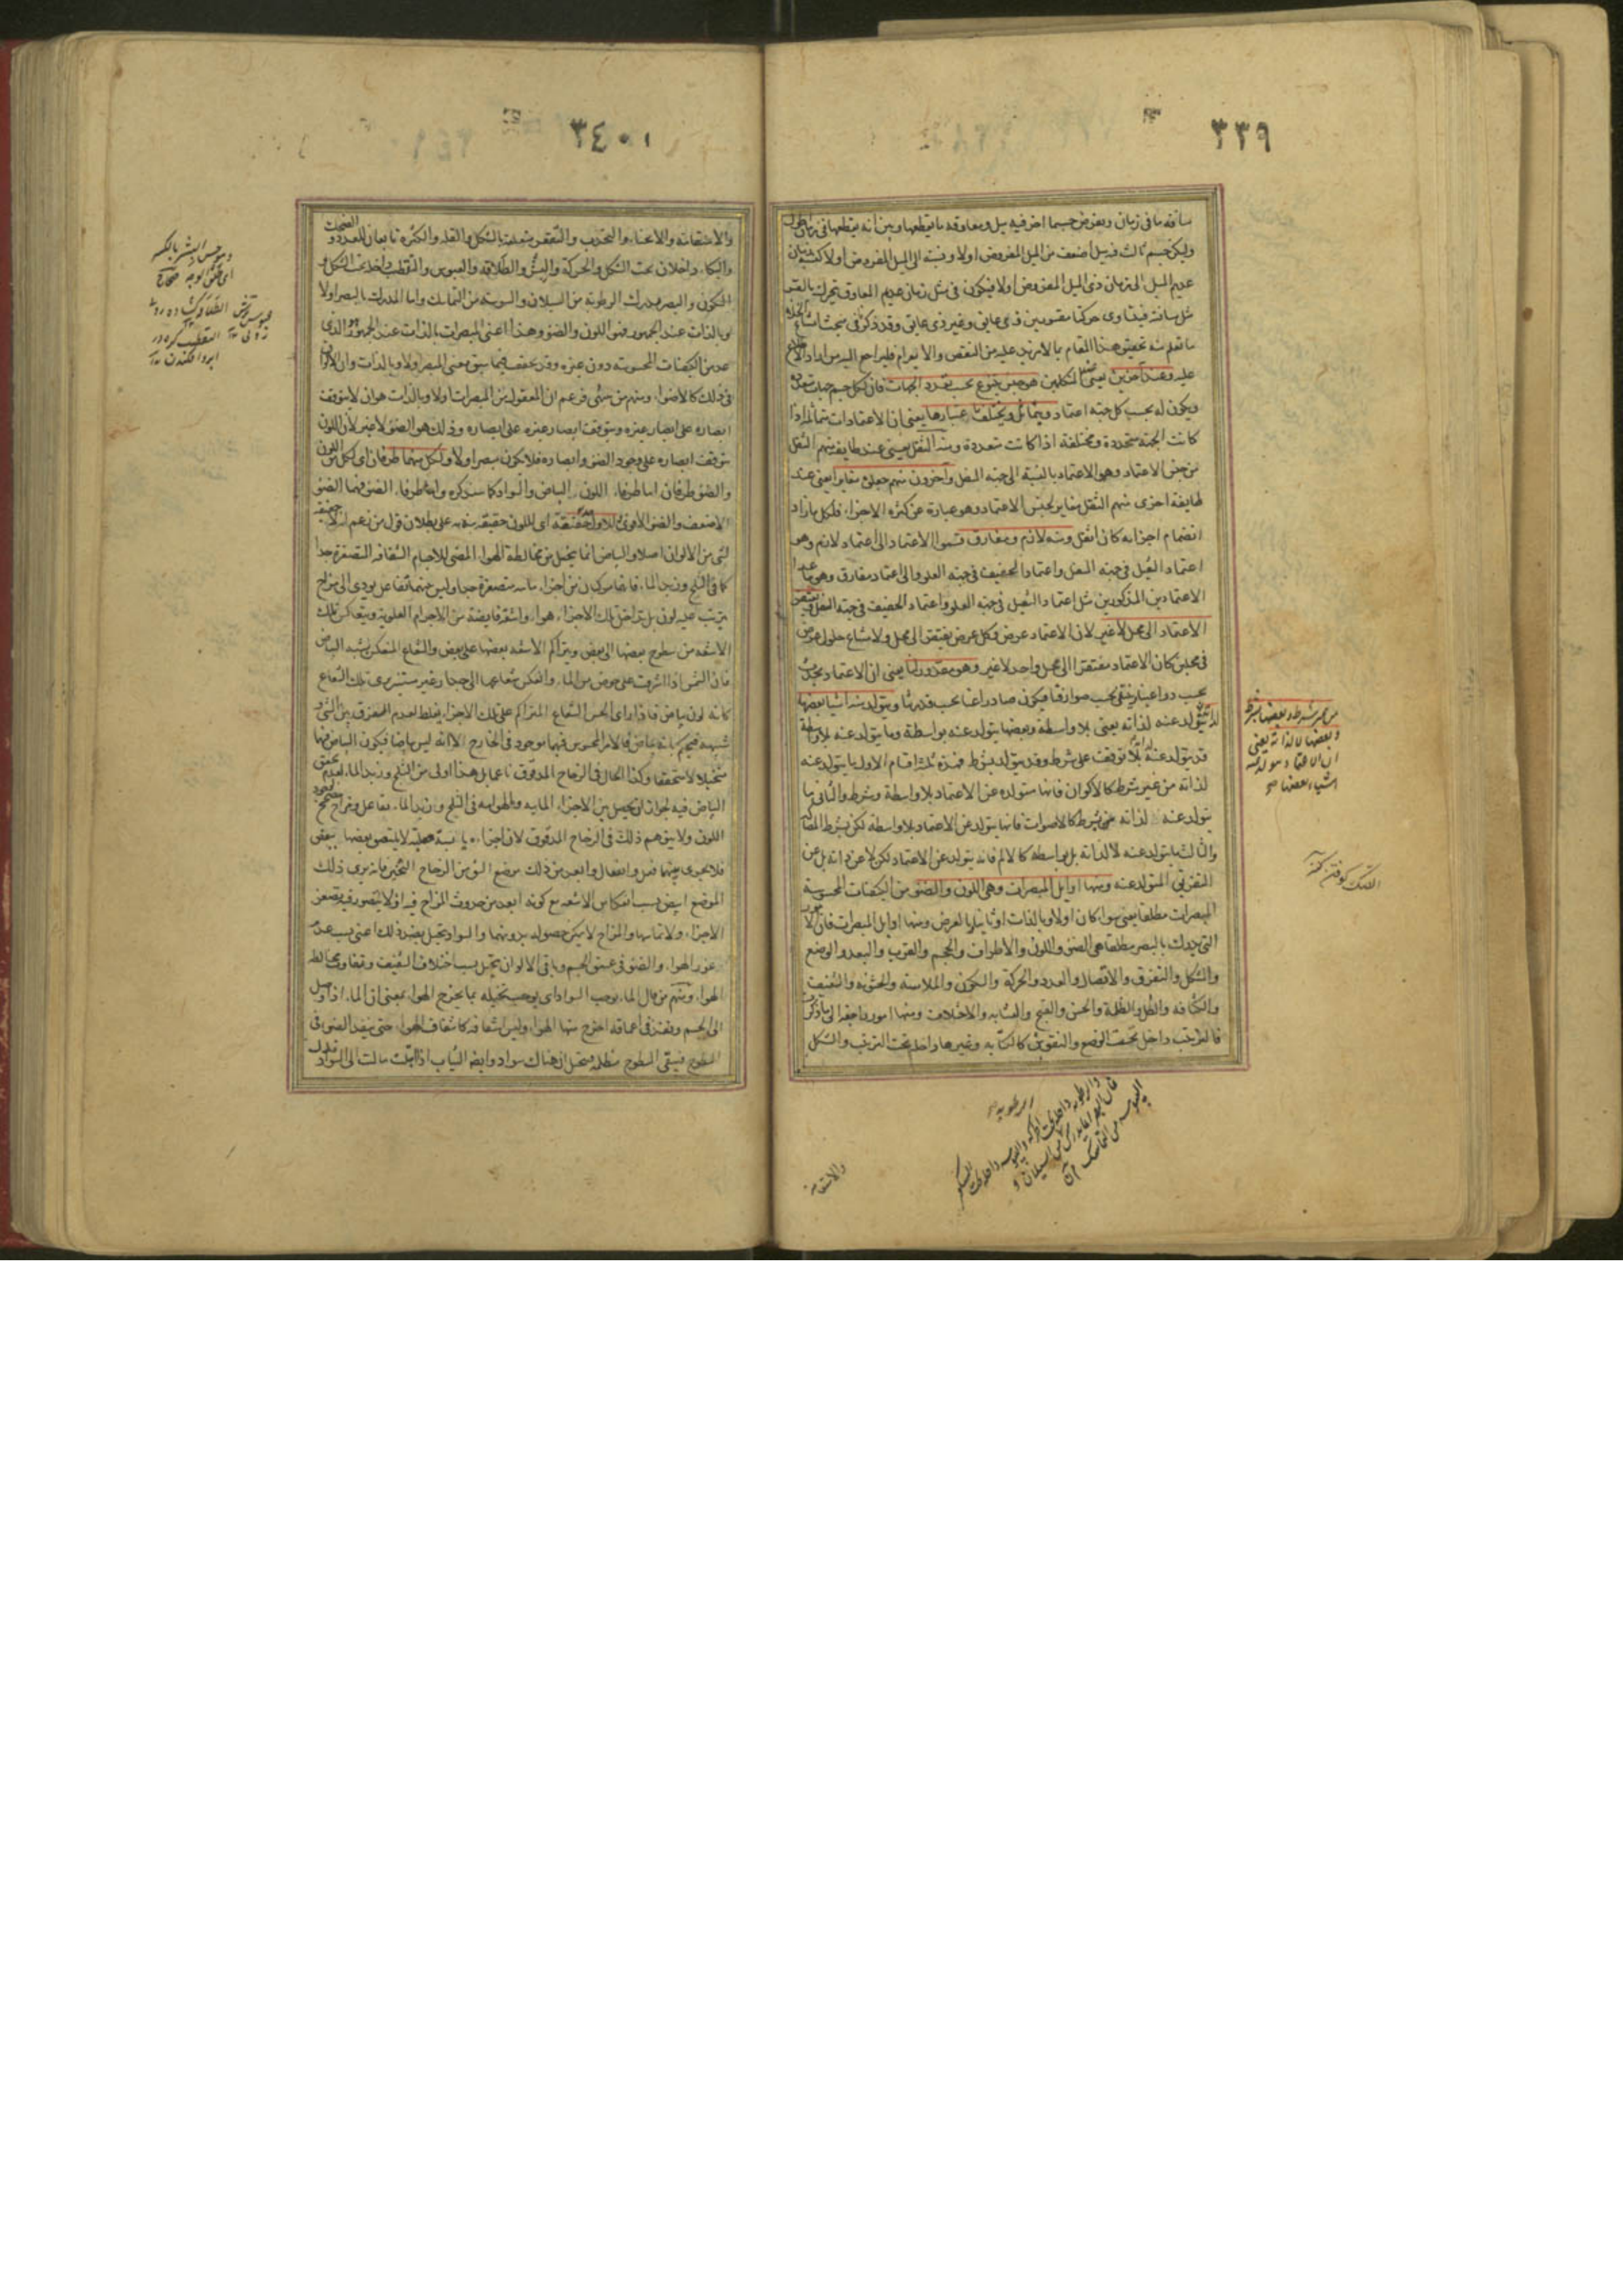 ٣٣٩
مسافة ما في زمان ويفرض جسما اخر فيه ميل ومعاوقة ما يقطعها وبين انه يقطعها في زمان اطول
وليكن جسم ثالث فيه ميل اضعف من الميل المفروض اولا ونسبته الى الميل المفروض اولا كنسبة زمان
عديم الميل الى زمان ذي الميل المفروض اولا فيكون في مثل زمان عديم المعاوق يتحرك بالقسر
مثل مسافته فيتساوى حركتا مقسورين ذي عايق وغير ذي عايق وقد ذكرنا في مبحث امتناع الخلاء
ما تعلم منه تحقيق هذا المقام بما لا مزيد عليه من النقض والابرام فليراجع اليه من اراد الاطلاع
عليه وعند آخرين يعني المتكلمين هو جنس يتنوع بحسب تعدد الجهات فان لكل جسم جهات متعددة
ويكون له بحسب كل جهة اعتماد ويتماثل ويختلف باعتبارها يعني ان الاعتمادات متماثلة اذا
كانت الجهة متحدة ومختلفة اذا كانت متعددة ومنه الثقل يعني عند طايفة منهم الثقل
من جنس الاعتماد وهو الاعتماد بالنسبة الى جهة السفل وآخرون منهم جعلوه مغايرا يعني عند
طايفة اخرى منهم الثقل مغاير لجنس الاعتماد وهو عبارة عن كثرة الاجزاء فلكل ما زاد
انضمام اجزائه كان اثقل ومنه لازم ومفارق قسموا الاعتماد الى اعتماد لازم وهو
اعتماد الثقيل في جهة السفل واعتماد الخفيف في جهة العلو والى اعتماد مفارق وهو ما عدا
الاعتمادين المذكورين مثل اعتماد الثقيل في جهة العلو واعتماد الخفيف في جهة السفل ويفتقر
الاعتماد الى محل لا غير لان الاعتماد عرض وكل عرض يفتقر الى محل ولامتناع حلول عرض
في محلين كان الاعتماد مفتقرا الى محل واحد لا غير وهو مقدور لنا يعني ان الاعتماد يحدث
بحسب دواعينا وينتفي بحسب صوارفنا فيكون صادرا عنا بحسب قدرتنا ويتولد منه اشيا بعضها
لذاته يتولد عنه لذاته يعني بلا واسطة وبعضها يتولد عنه بواسطة وما يتولد عنه بلا واسطة
قد يتولد عنه بلا توقف على شرط وقد يتولد بشرط فهذه ثلثة اقسام الاول ما يتولد عنه
لذاته من غير شرط كالاكوان فانها متولدة عن الاعتماد بلا واسطة وشرط والثاني ما
يتولد عنه لذاته بشرط كالاصوات فانها يتولد عن الاعتماد بلا واسطة لكن بشرط المصاكة
والثالث ما يتولد عنه لا لذاته بل بواسطة كالالم فانه يتولد عن الاعتماد لكن لا عن ذاته بل عن
التفريق المتولد عنه ومنها اوايل المبصرات وهي اللون والضوء من الكيفيات المحسوسة
المبصرات مطلقا يعني سواء كان اولا وبالذات او ثانيا وبالعرض ومنها اوايل المبصرات فان الامور
التي يدرك بالبصر مطلقا هي الضوء واللون والاطراف والحجم والقرب والبعد والوضع
والشكل والتفرق والاتصال والعدد والحركة والسكون والملاسة والخشونة والشفيف
والكثافة والظل والظلمة والحسن والقبح والتشابه والاختلاف ومنها امور راجعة الى ما ذكرنا
فالترتيب داخل تحت الوضع والنقوش كالكتابة وغيرها داخلة تحت الترتيب والشكل
من غير شرط وبعضها بشرط
وبعضها لا لذاته يعني
ان الاعتماد يتولد منه
اشياء بعضها صح
والاستقامة
٣٤٠
والاستقامة والانحناء والتحدب والتقعر متعلقة بالشكل والقلة والكثرة تابعان للعدد والضحك
والبكاء داخلان تحت الشكل والحركة والبشر والطلاقة والعبوس والتقطيب داخلة تحت الشكل و
السكون والبصر يدرك الرطوبة من السيلان واليبوسة من التماسك واما المدرك بالبصر اولا
وبالذات عند الجمهور فهو اللون والضوء وهذا اعني المبصرات بالذات عند الجمهور هو الذي
عد من الكيفيات المحسوسة دون غيره وقد تحقق فيما سبق معنى المبصر اولا وبالذات وان الالوان
في ذلك كالاضواء ومنهم من زعم ان المعقول من المبصرات اولا وبالذات هو ان لا يتوقف
ابصاره على ابصار غيره ويتوقف ابصار غيره على ابصاره وذلك هو الضوء لا غير لان اللون
يتوقف ابصاره على وجود الضوء وابصاره فلا يكون مبصرا اولا ولكل منهما طرفان اى لكل من اللون
والضوء طرفان اما طرفا اللون البياض والسواد كما سنذكره واما طرفا الضوء فهما الضوء
الاضعف والضوء الاقوى وللاول حقيقة اى للون حقيقة نبه به على بطلان قول من زعم انه لا حقيقة
لشئ من الالوان اصلا والبياض انما يتخيل من مخالطة الهواء المضئ للاجسام الشفافة المتصغرة جدا
كما في الثلج وزبد الماء فانهما مركبان من اجزاء مائية متصغرة جدا وليس بينهما تفاعل يودي الى مزاج
يترتب عليه لون بل تداخل تلك الاجزاء هواء واشعة فايضة من الاجرام العلوية وينعكس تلك
الاشعة من سطوح بعضها الى بعض ويتراكم الاشعة بعضها على بعض والشعاع المنعكس يشبه البياض
فان الشمس اذا اشرقت على حوض من الماء وانعكس شعاعها الى جدار غير مستنير يرى ذلك الشعاع
كانه لون بياض فاذا راى الحس الشعاع المتراكم على تلك الاجزاء يغلط لعدم الفرق بين الشئ و
شبيهه فيحكم بانه بياض فالامر المحسوس فيهما موجود في الخارج الا انه ليس بياضا فيكون البياض فيهما
متخيلا لا متحققا وكذا الحال في الزجاج المدقوق ناعما بل هذا اولى من الثلج وزبد الماء لعدم تحقق
البياض فيه لجواز ان يحصل بين الاجزاء المائية والهوائية في الثلج وزبد الماء تفاعل ومزاج مصحح لوجود
اللون ولا يتوهم ذلك في الزجاج المدقوق لان اجزاءه يابسة صلبة لا يلتصق بعضها ببعض
فلا يجرى بينهما فعل وانفعال وابعد من ذلك موضع الشق من الزجاج الثخين فانه يرى ذلك
الموضع ابيض بسبب انعكاس الاشعة مع كونه ابعد من حدوث المزاج فيه اذ لا يتصور فيه تصغر
الاجزاء ولا تماسها والمزاج لا يمكن حصوله بدونهما والسواد يتخيل بضد ذلك اعني بسبب عدم
غور الهواء والضوء في عمق الجسم وباقي الالوان يتخيل بسبب اختلاف الشفيف وتفاوت مخالطة
الهواء ومنهم من قال الماء يوجب السواد اى يوجب تخيله بما يخرج الهواء بمعنى ان الماء اذا وصل
الى الجسم ونفذ في اعماقه اخرج منها الهواء وليس اشفافه كاشفاف الهواء حتى ينفذ الضوء في
السطوح فيبقى السطوح مظلمة فيتخيل ان هناك سوادا وايضا الثياب اذا ابتلت مالت الى السواد